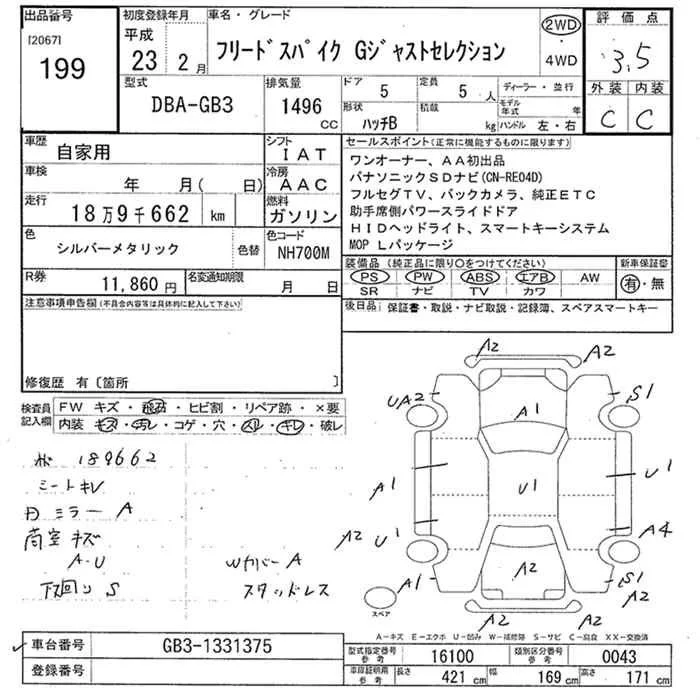 出品番号
[2067]
199
初度登録年月
平成
23 2 月
車名・グレード
フリードスパイク Gジャストセレクション
2WD
・
4WD
評価点
3.5
外装 内装
C C
型式
DBA-GB3
排気量
1496
CC
ドア 5
定員 5 人
形状 ハッチB
積載 kg
ディーラー・並行
モデル年式 年
ハンドル 左・右
車歴
自家用
シフト
IAT
車検
年 月( 日)
冷房
AAC
走行
18万9千662 km
燃料
ガソリン
色
シルバーメタリック
色替
色コード
NH700M
R券
11,860円
名変通知期限
月 日
セールスポイント(正常に機能するものに限ります)
ワンオーナー、AA初出品
パナソニックSDナビ(CN-RE04D)
フルセグTV、バックカメラ、純正ETC
助手席側パワースライドドア
HIDヘッドライト、スマートキーシステム
MOP Lパッケージ
装備品(純正品に限り○をつけてください)
PS PW ABS エアB AW
SR ナビ TV カワ
新車保証書
有・無
後日品: 保証書・取説・ナビ取説・記録簿、スペアスマートキー
注意事項申告欄(不具合内容等は具体的に記入して下さい)
修復歴 有〔箇所 〕
検査員
記入欄
FW キズ・飛石・ヒビ割・リペア跡・×要
内装 キズ・汚レ・コゲ・穴・スレ・キレ・破レ
189662
シートキレ
ミラー A
キズ
A-U
下廻り S
Wカバー A
スタッドレス
A2 A2
UA2 A1 S1
A1 U1 U1
A2 U1 A4
A1 A2 S1
A2
A2 A2
スペア
A-キズ E-エクボ U-凹み W-補修跡 S-サビ C-腐食 XX-交換済
車台番号
GB3-1331375
登録番号
型式指定番号
参考
16100
類別区分番号
参考
0043
車庫証明用
参考
長さ 421 cm
幅 169 cm
高さ 171 cm